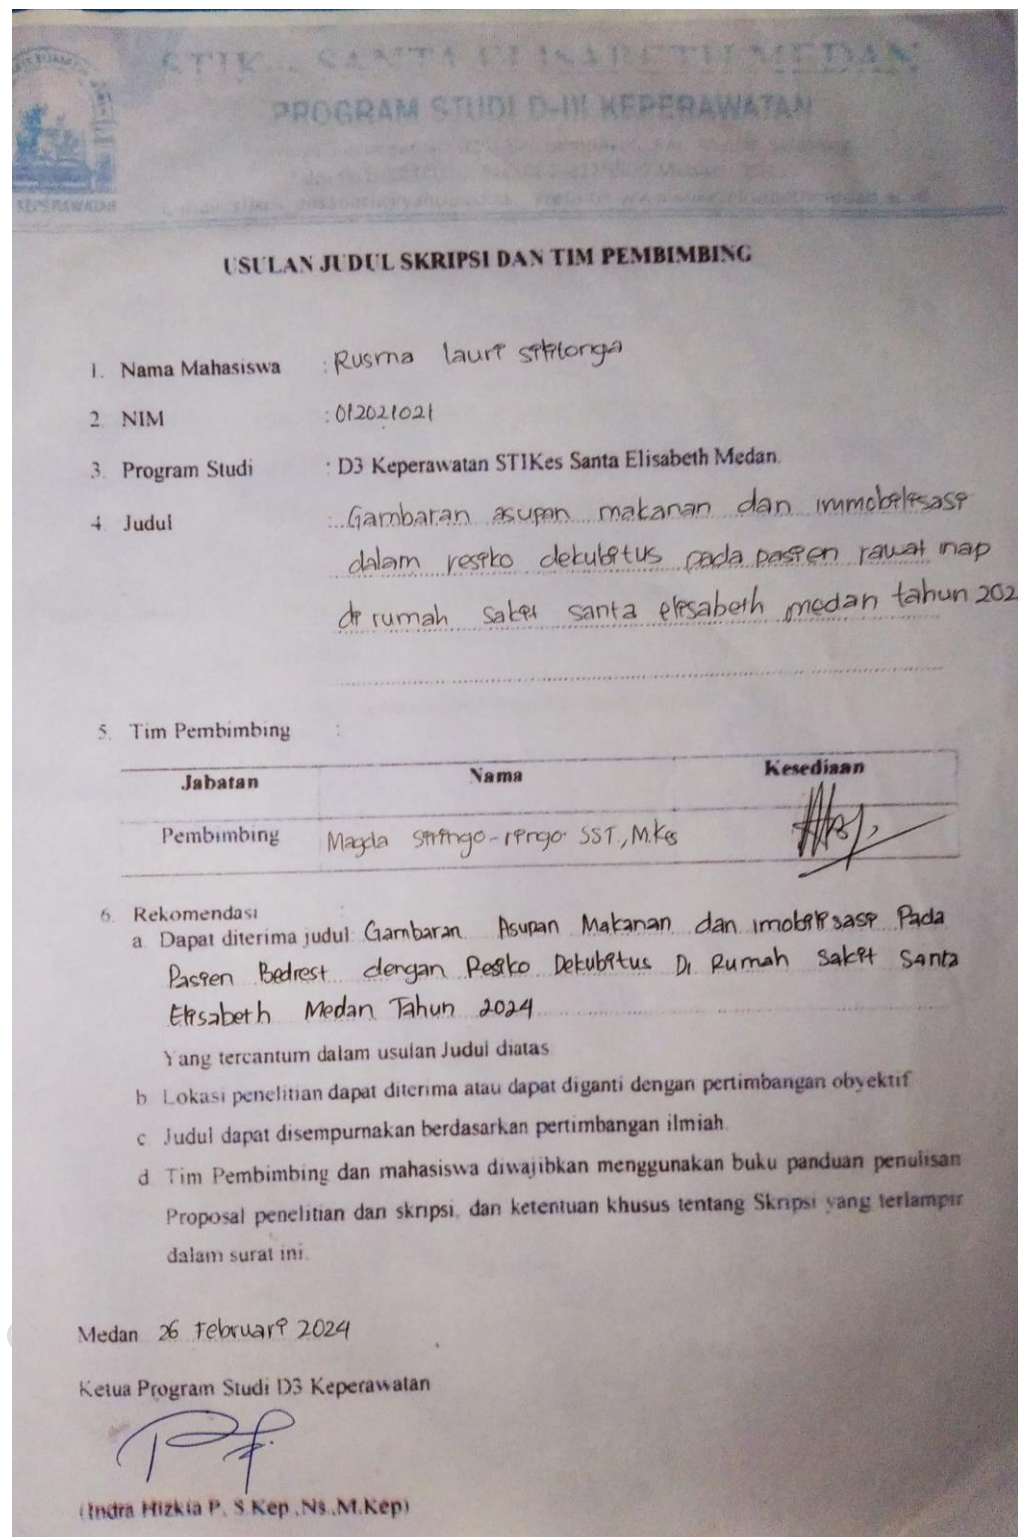 STIKes SANTA ELISABETH MEDAN
PROGRAM STUDI D-III KEPERAWATAN
KEPERAWATAN
USULAN JUDUL SKRIPSI DAN TIM PEMBIMBING
1. Nama Mahasiswa : Rusma lauri sihilonga
2. NIM : 012021021
3. Program Studi : D3 Keperawatan STIKes Santa Elisabeth Medan.
4. Judul : Gambaran asupan makanan dan immobilisasi
dalam resiko dekubitus pada pasien rawat inap
di rumah sakit santa elisabeth medan tahun 202
5. Tim Pembimbing :
Jabatan Nama Kesediaan
Pembimbing Magda Siringo-ringo SST., M.Kes
6. Rekomendasi :
a. Dapat diterima judul: Gambaran Asupan Makanan dan imobilisasi Pada
Pasien Bedrest dengan Resiko Dekubitus Di Rumah Sakit Santa
Elisabeth Medan Tahun 2024
Yang tercantum dalam usulan Judul diatas
b. Lokasi penelitian dapat diterima atau dapat diganti dengan pertimbangan obyektif
c. Judul dapat disempurnakan berdasarkan pertimbangan ilmiah.
d. Tim Pembimbing dan mahasiswa diwajibkan menggunakan buku panduan penulisan
Proposal penelitian dan skripsi, dan ketentuan khusus tentang Skripsi yang terlampir
dalam surat ini.
Medan 26 Februari 2024
Ketua Program Studi D3 Keperawatan
(Indra Hizkia P, S.Kep.,Ns.,M.Kep)